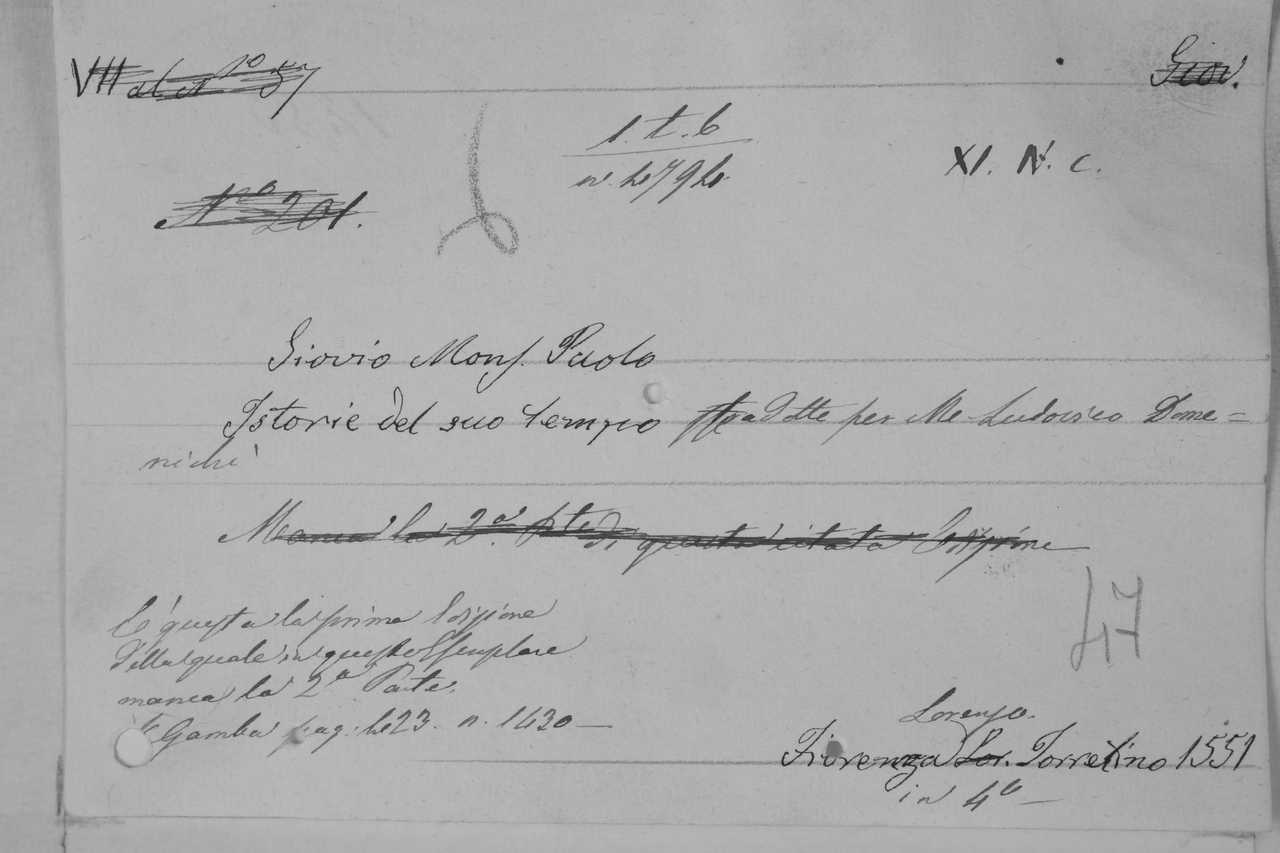 VII al N.º 57
Giov.
1. t. 6
n. 4794
XI. N. C.
Nº 201.
6
Giovio Mons. Paolo
Istorie del suo tempo tradotte per Me Ludovico Dome=
nichi
Manca la 2ª. Pte di questa citata Edizione
È questa la prima Edizione
della quale in questo Esemplare
manca la 2ª Parte.
Gamba pag. 423. n. 1430 —
47
Lorenzo.
Fiorenza Lor. Torretino 1551
in 4º —